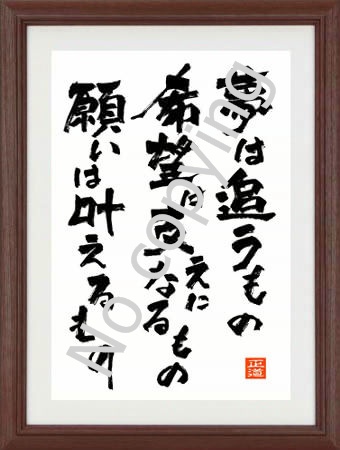 夢は追うもの
希望は支えになるもの
願いは叶えるもの
正道
No copying